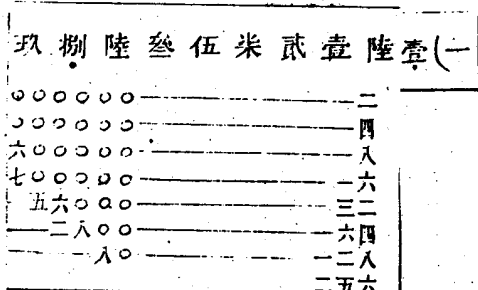 玖捌陸叁伍柒貳壹陸壹(一
○○○○○○——二
○○○○○○——四
六○○○○○——八
七○○○○○——一六
五六○○○——三二
——二八○○——六四
——八○——一二八
二五六